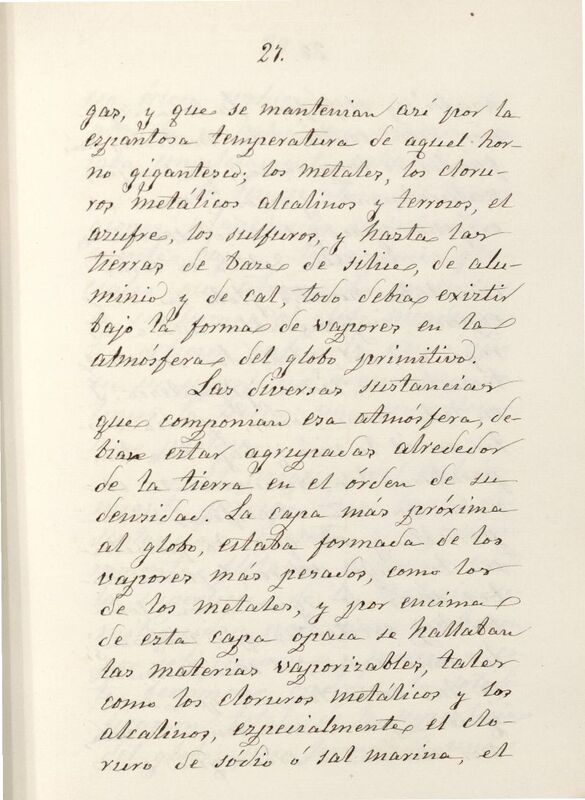 27.
gas, y que se mantenian así por la
espantosa temperatura de aquel hor-
no gigantesco; los metales, los cloru-
ros metálicos alcalinos y terrosos, el
azufre, los sulfuros, y hasta las
tierras de base de silice, de alu-
minio y de cal, todo debia existir
bajo la forma de vapores en la
atmósfera del globo primitivo.
Las diversas sustancias
que componian esa atmósfera, de-
bian estar agrupadas alrededor
de la tierra en el órden de su
densidad. La capa más próxima
al globo, estaba formada de los
vapores más pesados, como los
de los metales, y por encima
de esta capa opaca se hallaban
las materias vaporizables, tales
como los cloruros metálicos y los
alcalinos, especialmente el clo-
ruro de sódio ó sal marina, el